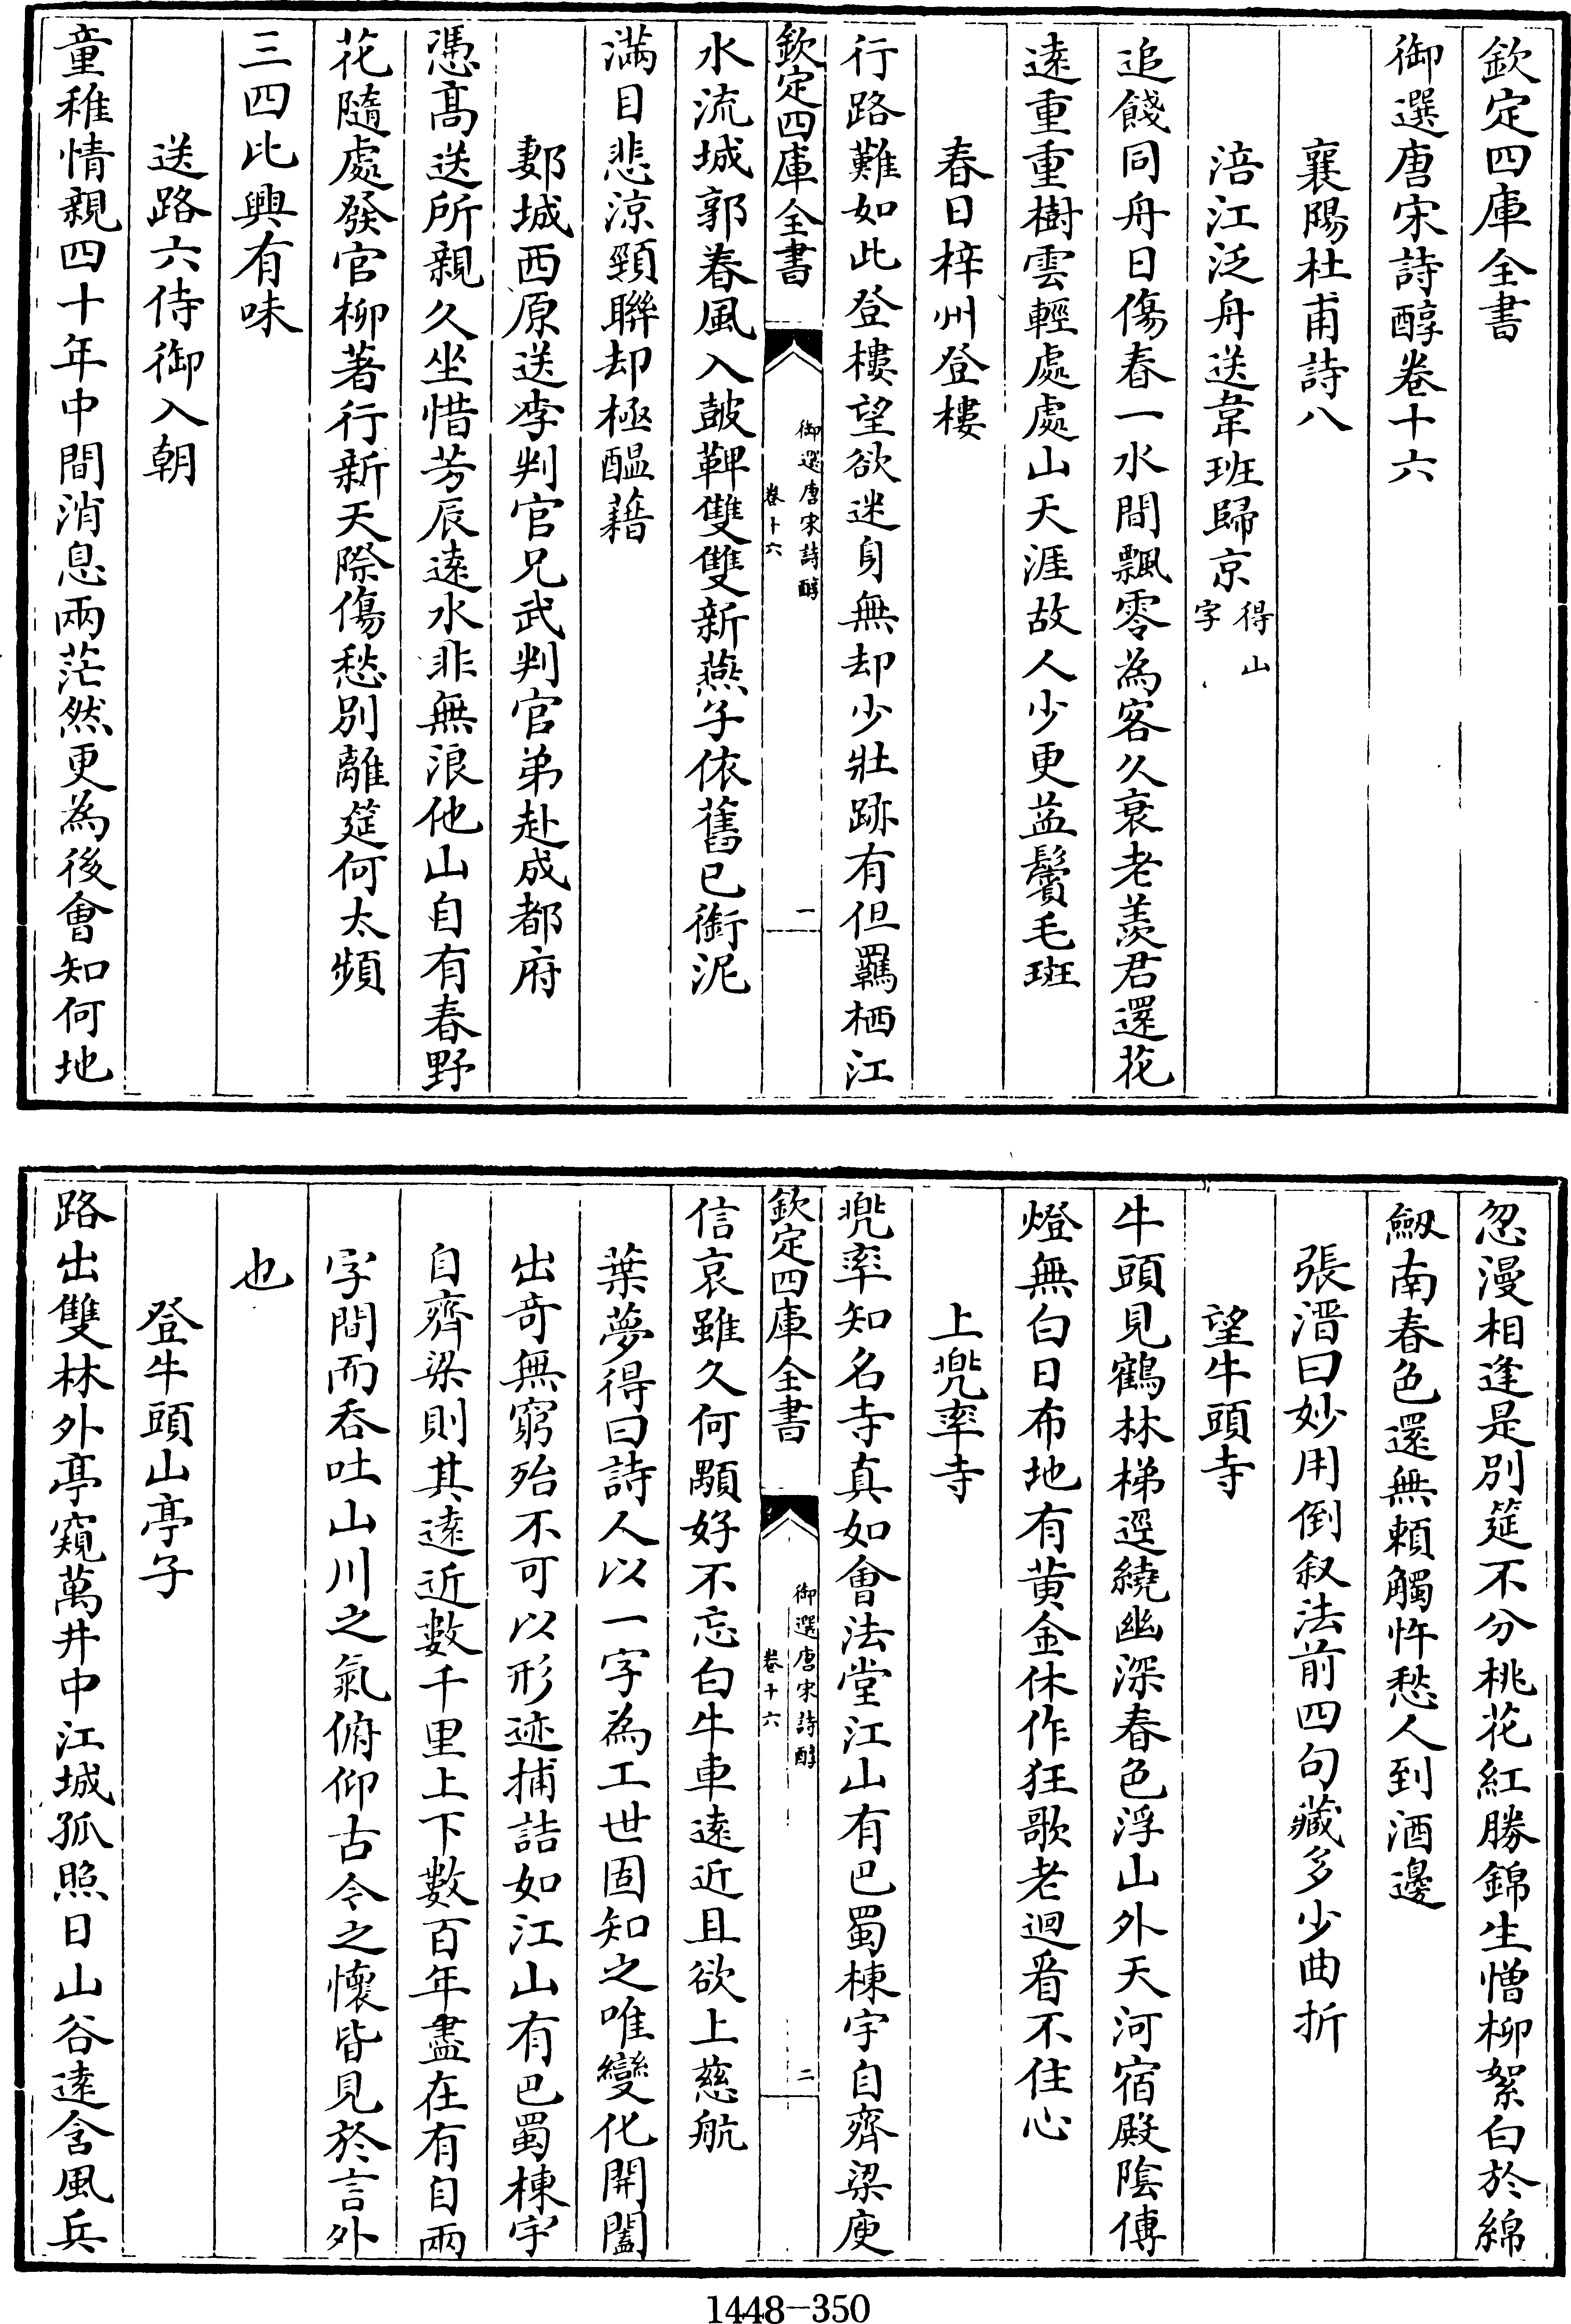 欽定四庫全書
御選唐宋詩醇卷十六
襄陽杜甫詩八
涪江泛舟送韋班歸京得山字
追餞同舟日傷春一水間飄零為客久衰老羨君還花
遠重重樹雲輕處處山天涯故人少更益鬢毛斑
春日梓州登樓
行路難如此登樓望欲迷身無却少壯跡有但羈栖江
欽定四庫全書
御選唐宋詩醇
卷十六
一
水流城郭春風入鼓鞞雙雙新燕子依舊已銜泥
滿目悲涼頸聯却極醖藉
郪城西原送李判官兄武判官弟赴成都府
憑高送所親久坐惜芳辰遠水非無浪他山自有春野
花隨處發官柳著行新天際傷愁別離筵何太頻
三四比興有味
送路六侍御入朝
童稚情親四十年中間消息兩茫然更為後會知何地
忽漫相逢是別筵不分桃花紅勝錦生憎柳絮白於綿
劔南春色還無賴觸忤愁人到酒邊
張溍曰妙用倒叙法前四句藏多少曲折
望牛頭寺
牛頭見鶴林梯逕繞幽深春色浮山外天河宿殿隂傳
燈無白日布地有黄金休作狂歌老迴看不住心
上兠率寺
兠率知名寺真如會法堂江山有巴蜀棟宇自齊梁庾
欽定四庫全書
御選唐宋詩醇
卷十六
二
信哀雖久何顒好不忘白牛車遠近且欲上慈航
葉夢得曰詩人以一字為工世固知之唯變化開闔
出奇無窮殆不可以形迹捕詰如江山有巴蜀棟宇
自齊梁則其遠近數千里上下數百年盡在有自兩
字間而吞吐山川之氣俯仰古今之懷皆見於言外
也
登牛頭山亭子
路出雙林外亭窺萬井中江城孤照日山谷遠含風兵
1448-350